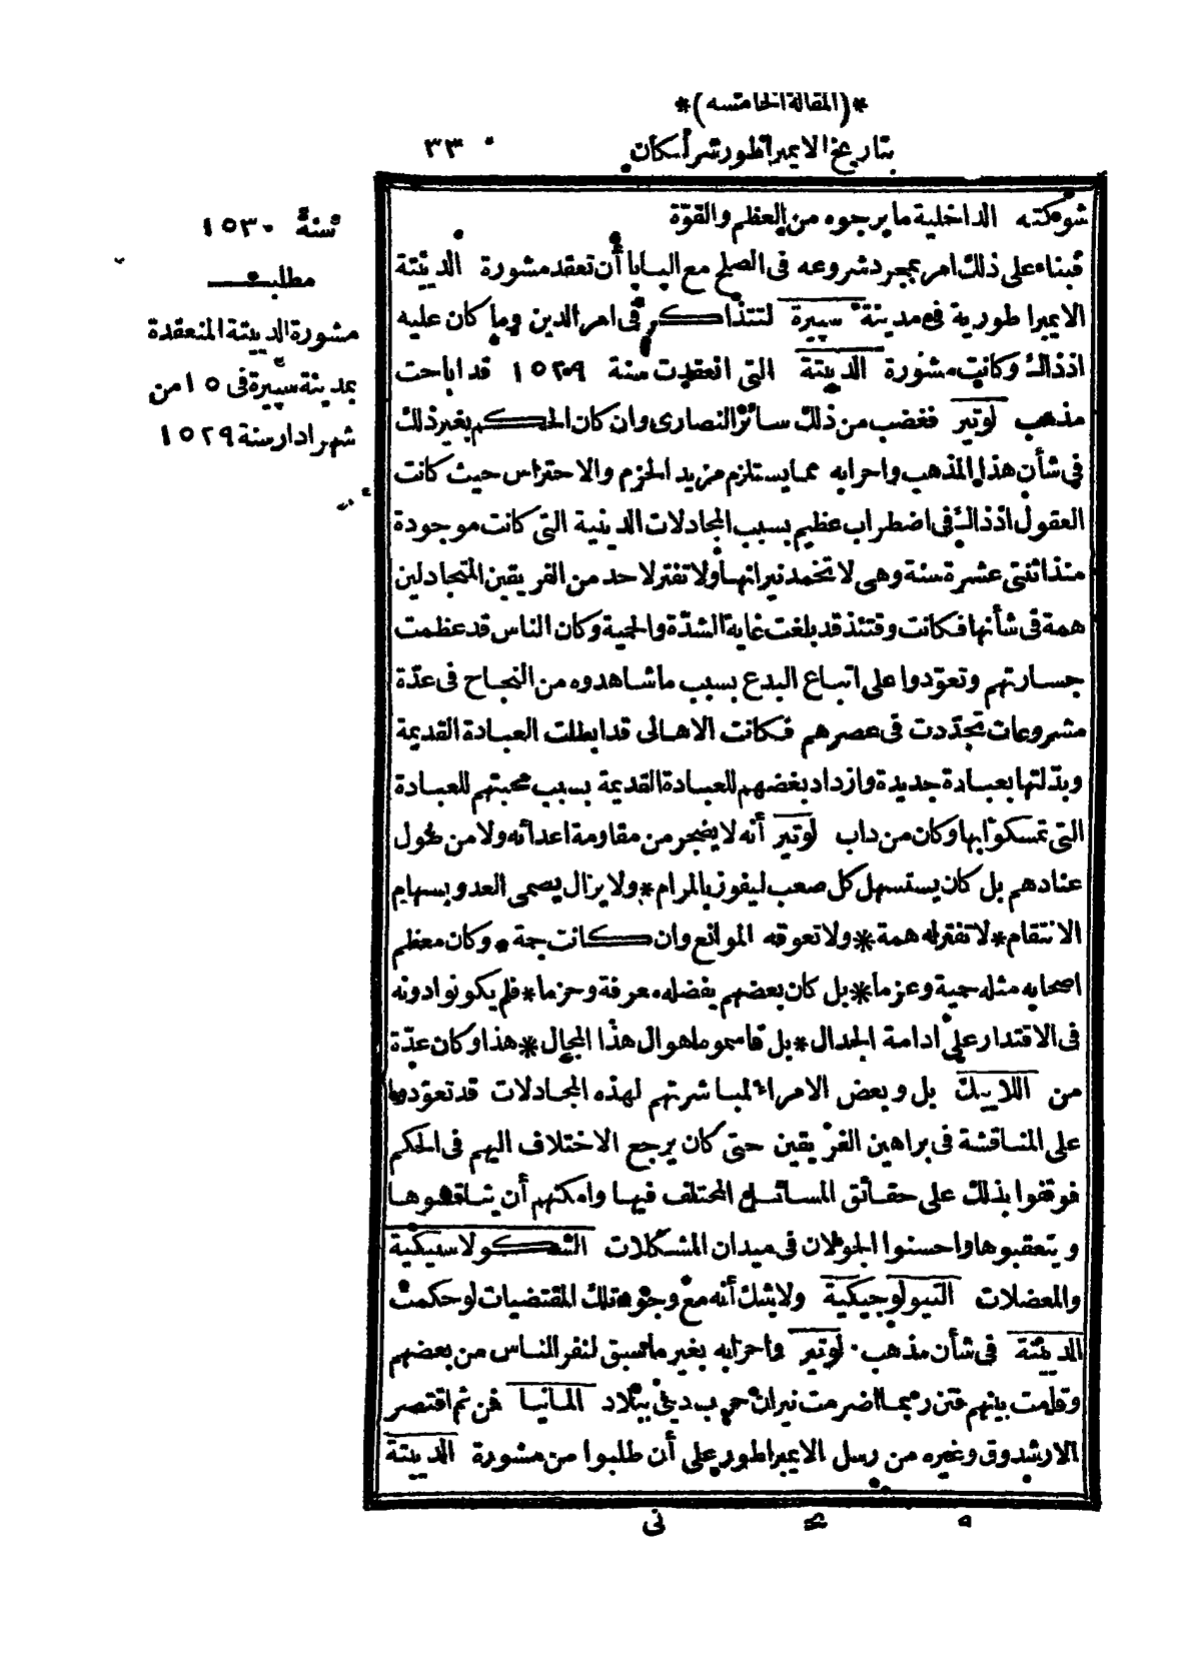 *(المقالة الخامسة)*
بتاريخ الايمبراطور شرلسكان
٣٣
شوكته الداخلية ما يرجوه من العظم والقوّة
فبناء على ذلك امر بمجرد شروعه فى الصلح مع البابا أن تعقد مشورة الديتة
الايمبراطورية فى مدينة سپيرة لتتذاكر فى امر الدين وما كان عليه
اذذاك وكانت مشورة الديتة التى انعقدت سنة ١٥٢٩ قد اباحت
مذهب لوتير فغضب من ذلك سائر النصارى وان كان الحكم بغير ذلك
فى شأن هذا المذهب واحزابه مما يستلزم مزيد الحزم والاحتراس حيث كانت
العقول اذذاك فى اضطراب عظيم بسبب المجادلات الدينية التى كانت موجودة
منذ اثنتى عشرة سنة وهى لا تخمد نيرانها ولا تفتر لاحد من الفريقين المتجادلين
همة فى شأنها فكانت وقتئذ قد بلغت غاية الشدّة والحمية وكان الناس قد عظمت
جسارتهم وتعوّدوا على اتباع البدع بسبب ما شاهدوه من النجاح فى عدّة
مشروعات تجدّدت فى عصرهم فكانت الاهالى قد ابطلت العبادة القديمة
وبدّلتها بعبادة جديدة وازداد بغضهم للعبادة القديمة بسبب محبتهم للعبادة
التى تمسكوا بها وكان من داب لوتير أنه لا يضجر من مقاومة اعدائه ولا من طول
عنادهم بل كان يستسهل كل صعب ليفوز بالمرام * ولا يزال يصمى العدو بسهام
الانتقام * لا تفتر له همة * ولا تعوقه الموانع وان كانت جمة * وكان معظم
اصحابه مثله حمية وعزما * بل كان بعضهم يفضله معرفة وحزما * فلم يكونوا دونه
فى الاقتدار على ادامة الجدال * بل قاسموه اهوال هذا المجال * هذا وكان عدّة
من اللاييك بل وبعض الامراء لمباشرتهم لهذه المجادلات قد تعوّدوا
على المناقشة فى براهين الفريقين حتى كان يرجع الاختلاف اليهم فى الحكم
فوقفوا بذلك على حقائق المسائل المختلف فيها وامكنهم أن يناقضوها
ويتعقبوها واحسنوا الجولان فى ميدان المشكلات الشكولاسيكية
والمعضلات التيولوجيكية ولا يشك أنه مع وجود تلك المقتضيات لو حكمت
الديتة فى شأن مذهب لوتير واحزابه بغير ما سبق لنفر الناس من بعضهم
وقامت بينهم فتن ربما اضرمت نيران حرب دينى ببلاد المانيا فمن ثم اقتصر
الارشدوق وغيره من رسل الايمبراطور على أن طلبوا من مشورة الديتة
سنة ١٥٣٠
مطلب
مشورة الديتة المنعقدة
بمدينة سپيرة فى ١٥ من
شهر ادار سنة ١٥٢٩
٥
نى